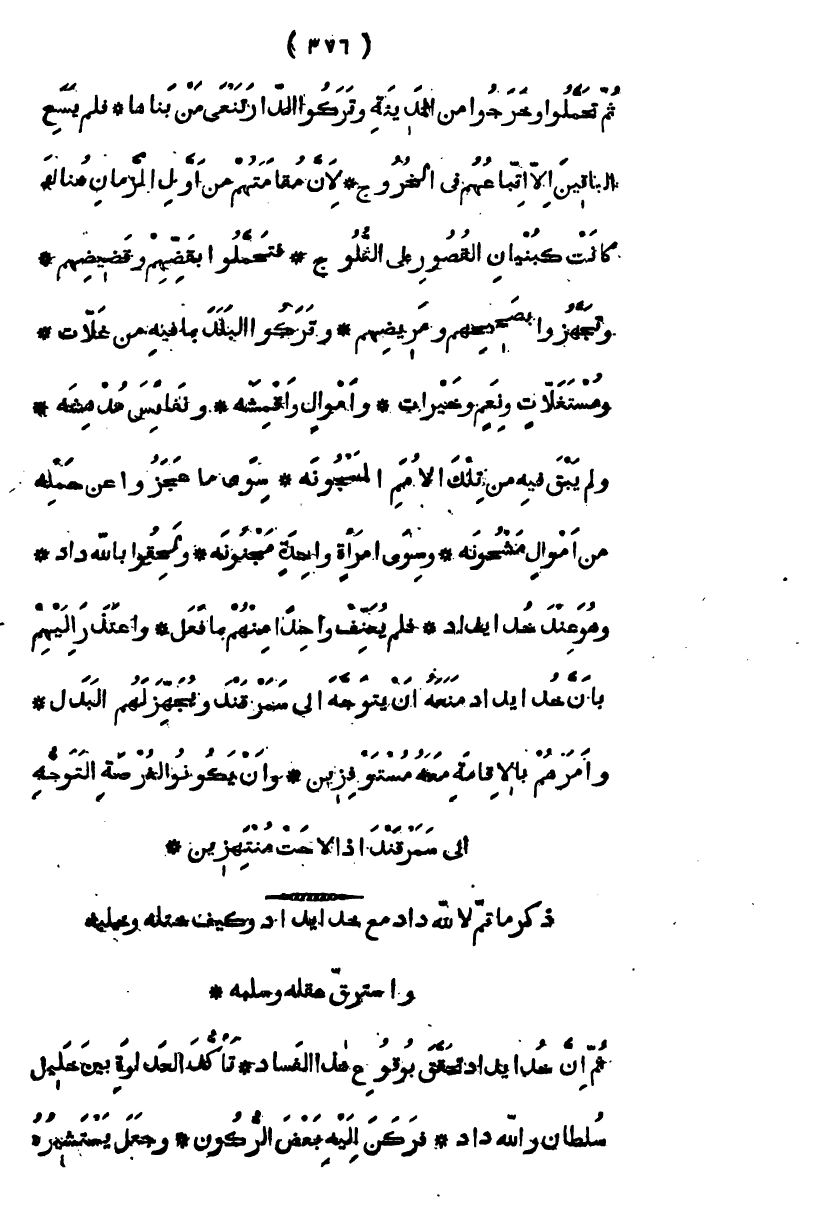 ( ٣٧٦ )
ثُمَّ تَحَمَّلُوا وخَرَجُوا من المَدِينَةِ وتَرَكُوا الدَّارَ تَنْعَى مَنْ بَناها * فلم يَسَعِ
الباقِينَ اِلّا اتِّباعُهُم فى الخُرُوجِ * لِأَنَّ مُقامَتَهُمْ من اَوَّلِ الزَّمانِ هُنالَهْ
كانَتْ كبُنْيانِ القُصُورِ على الثُّلُوجِ * فتَحَمَّلُوا بِقَضِّهِمْ وقَضِيضِهِم *
وتَجَهَّزُوا بصَحِيحِهِم ومَرِيضِهِم * وتَرَكُوا البَلَدَ بِما فيهِ من غَلّات *
ومُسْتَغَلّاتٍ ونِعَمٍ وخَيْرات * واَمْوالٍ واَقْمِشَه * ونَفايِسَ مُدْهِشَه *
ولم يَبْقَ فيهِ من تِلْكَ الاُمَمِ المَسْجُونَه * سِوَى ما عَجَزُوا عن حَمْلِه
من اَمْوالٍ مَشْحُونَه * وسِوَى امرَأَةٍ واحِدَةٍ مَجْنُونَه * ولَحِقُوا باللّه داد *
وهُوَ عِنْدَ خُدايداد * فلم يُعَنِّفْ واحِدًا مِنْهُمْ بما فَعَل * واعتَذَرَ اِلَيْهِمْ
بأَنَّ خُدايداد مَنَعَهُ اَنْ يَتَوَجَّهَ الى سَمَرْقَنْدَ ويُجَهِّزَ لَهُم البَدَل *
واَمَرَهُمْ بالاِقامَةِ مَعَهُ مُسْتَوْفِزِين * واَنْ يَكُونُوا لفُرْصَةِ التَوَجُّهِ
الى سَمَرْقَنْدَ اذا لاحَتْ مُنْتَهِزِين *
ذكر ما تمّ لاللّه داد مع خدايداد وكيف ختله وخلبه
واسترقّ عقله وسلبه *
ثُمَّ اِنَّ خُدايداد تحَقَّقَ بوُقُوعِ هذا الفَساد * تَأَكُّدَ العَداوَةِ بينَ خَلِيل
سُلطان واللّه داد * فرَكَنَ اِلَيْهِ بَعْضَ الرُّكُون * وجَعَلَ يَسْتَشِيرُهُ